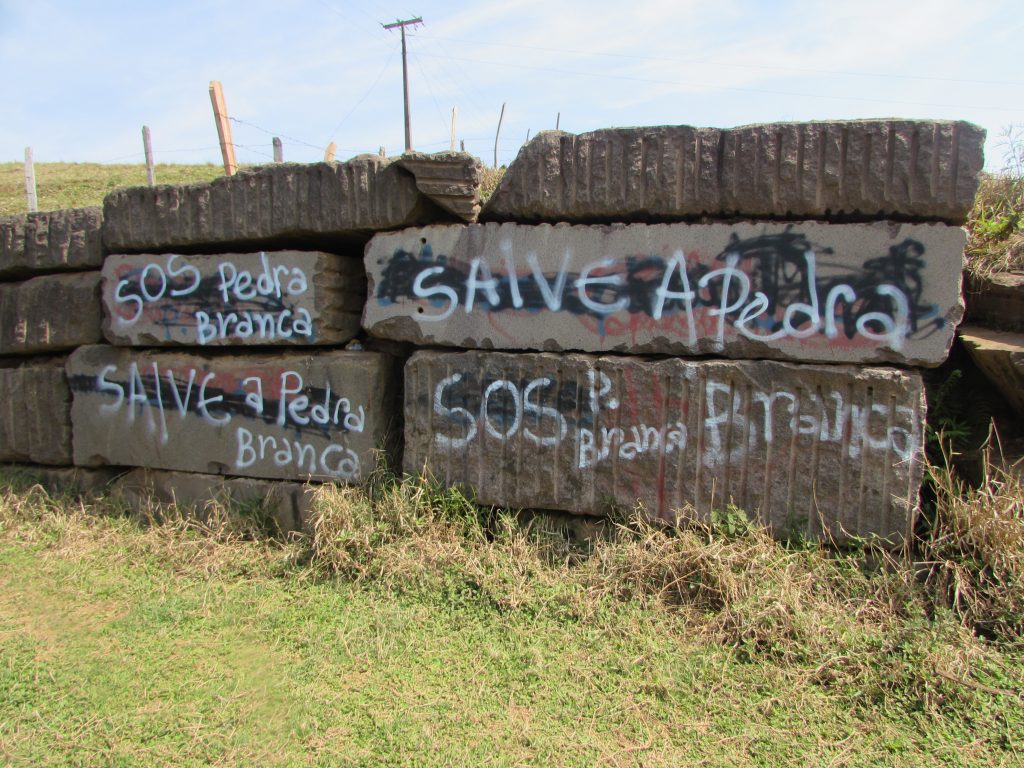 SOS Pedra
Branca
SAlvE A Pedra
SAlvE a Pedra
Branca
SOS P.
Branca
Branca